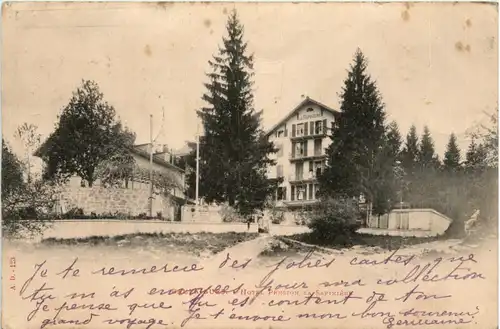 A D. - 125
HOTEL PENSION LA SAPINIÈRE
Je te remercie des jolies cartes que
tu m'as envoyées pour ma collection
Je pense que tu es content de ton
grand voyage. Je t'envoie mon bon souvenir